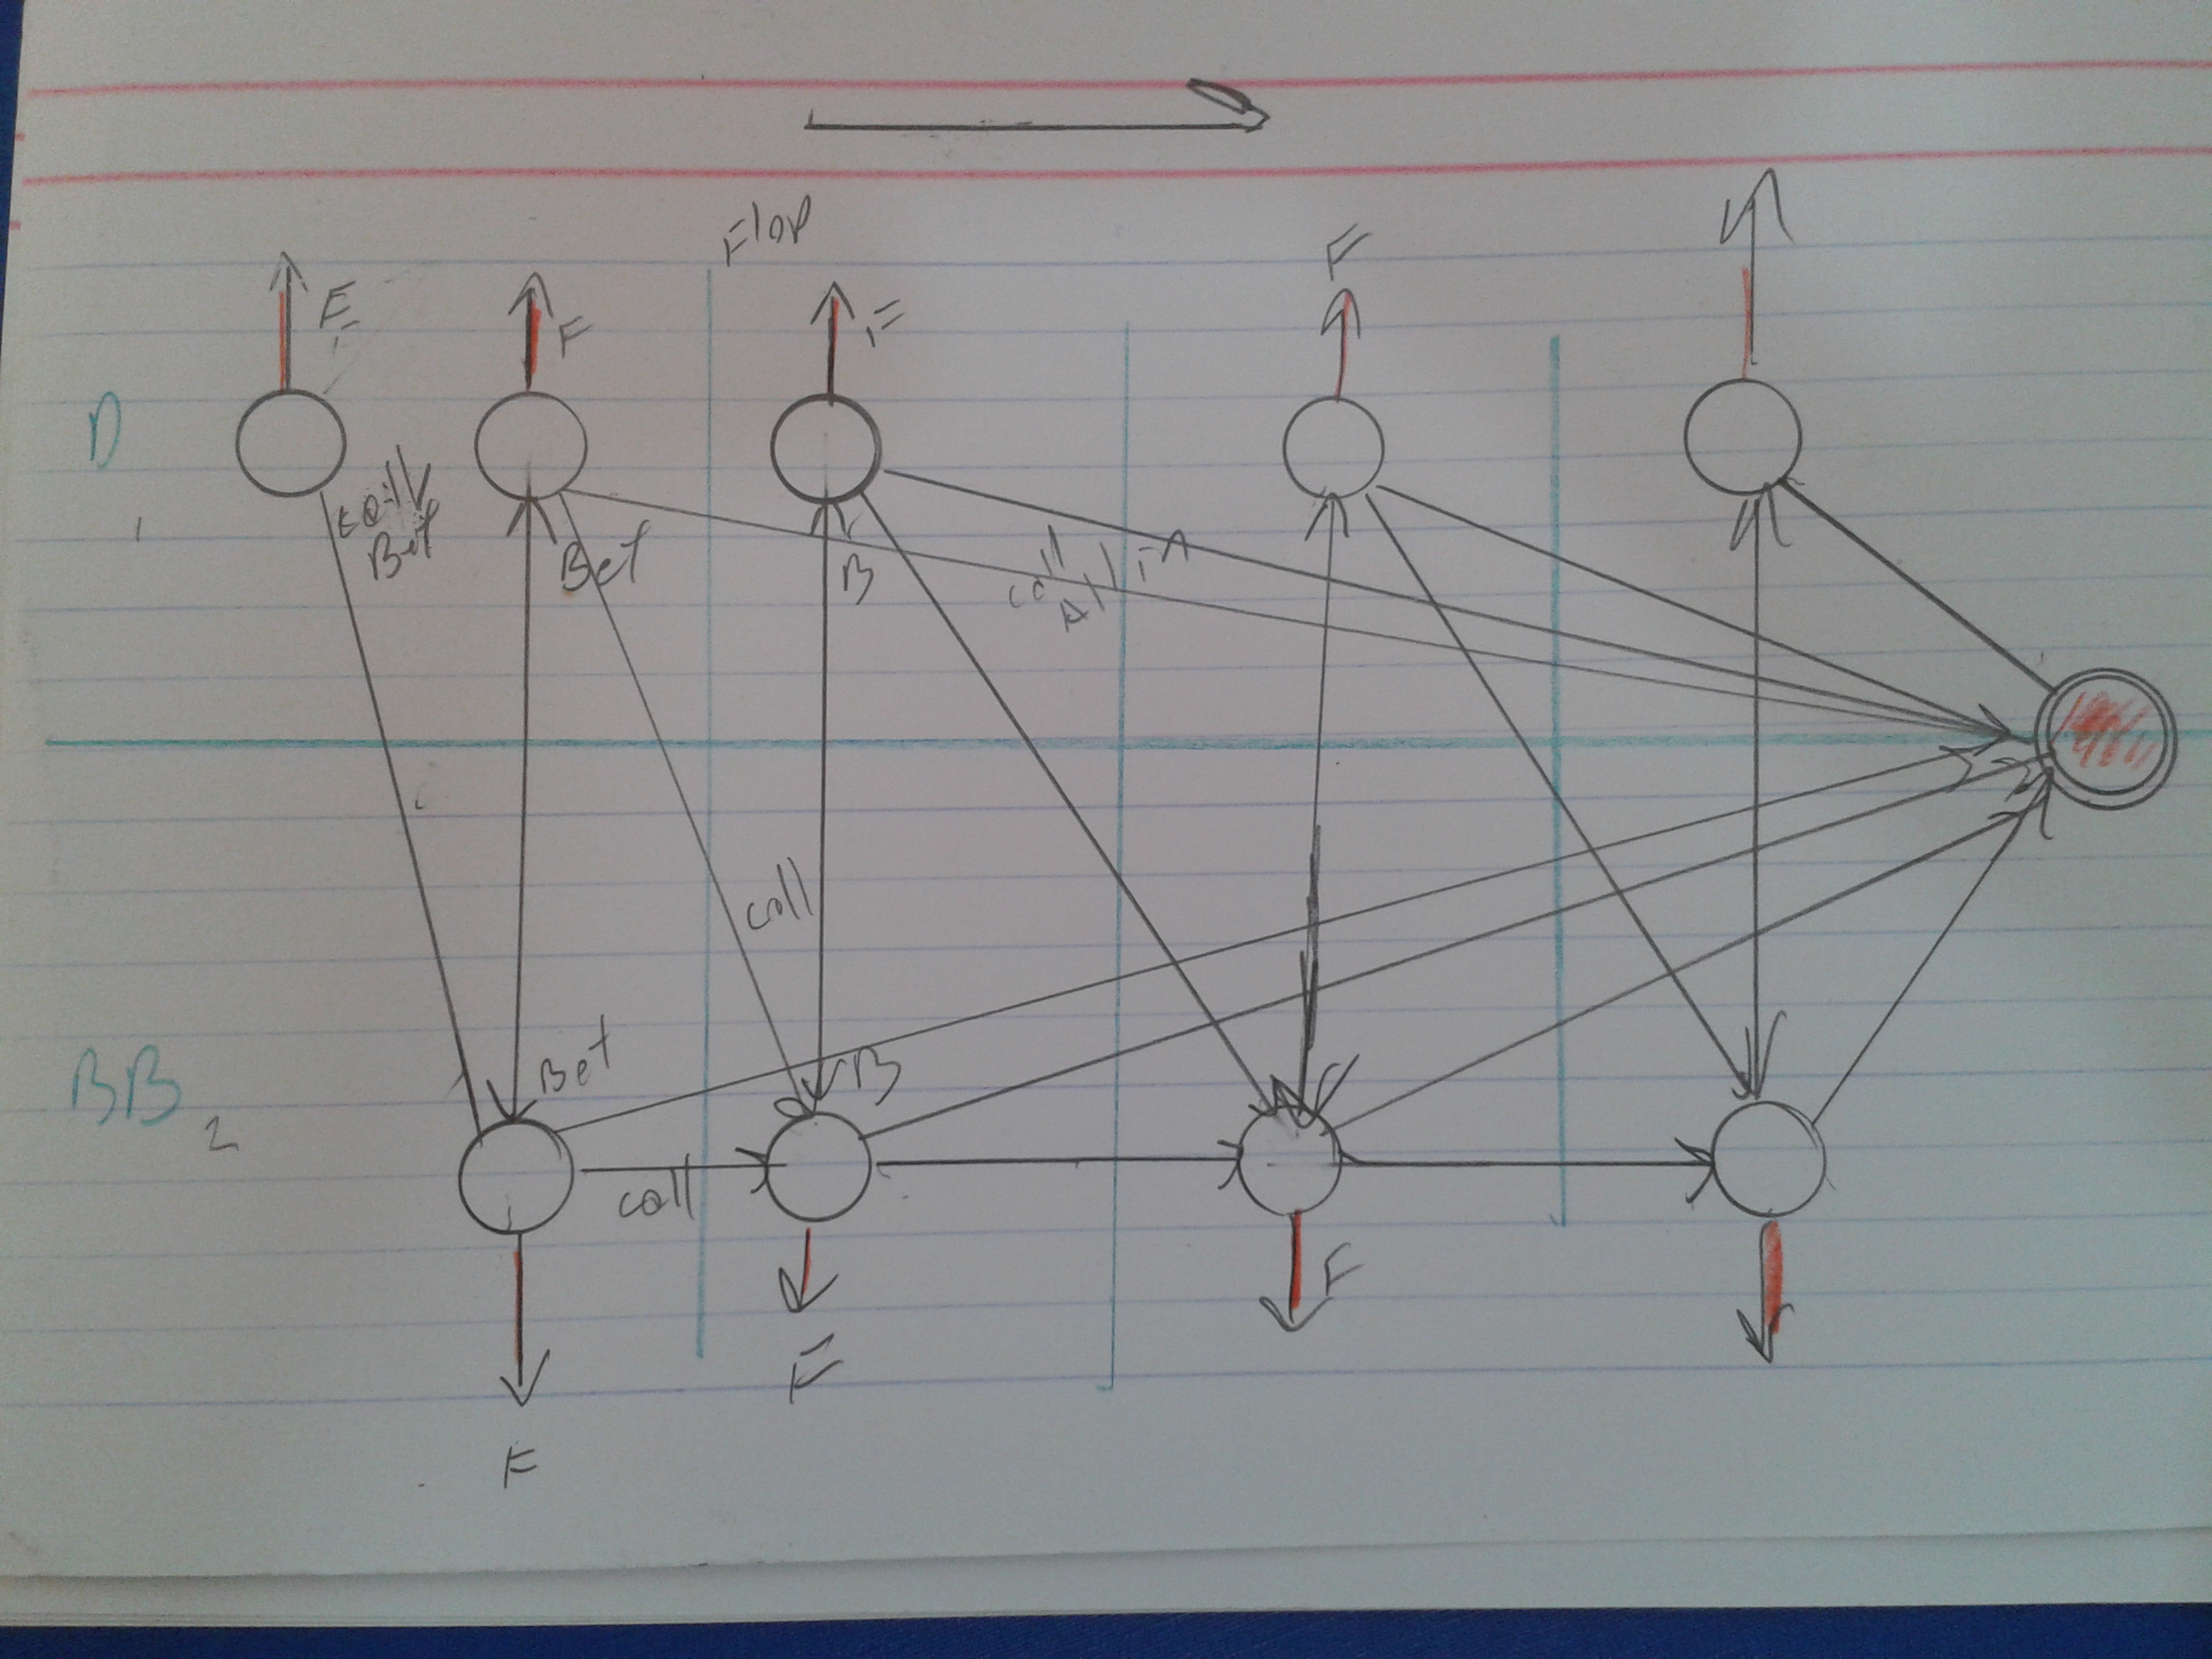 Flop
F
F
F
F
D
call
Bet
1
Bet
B
call
All in
call
Bet
B
BB
2
call
F
F
F